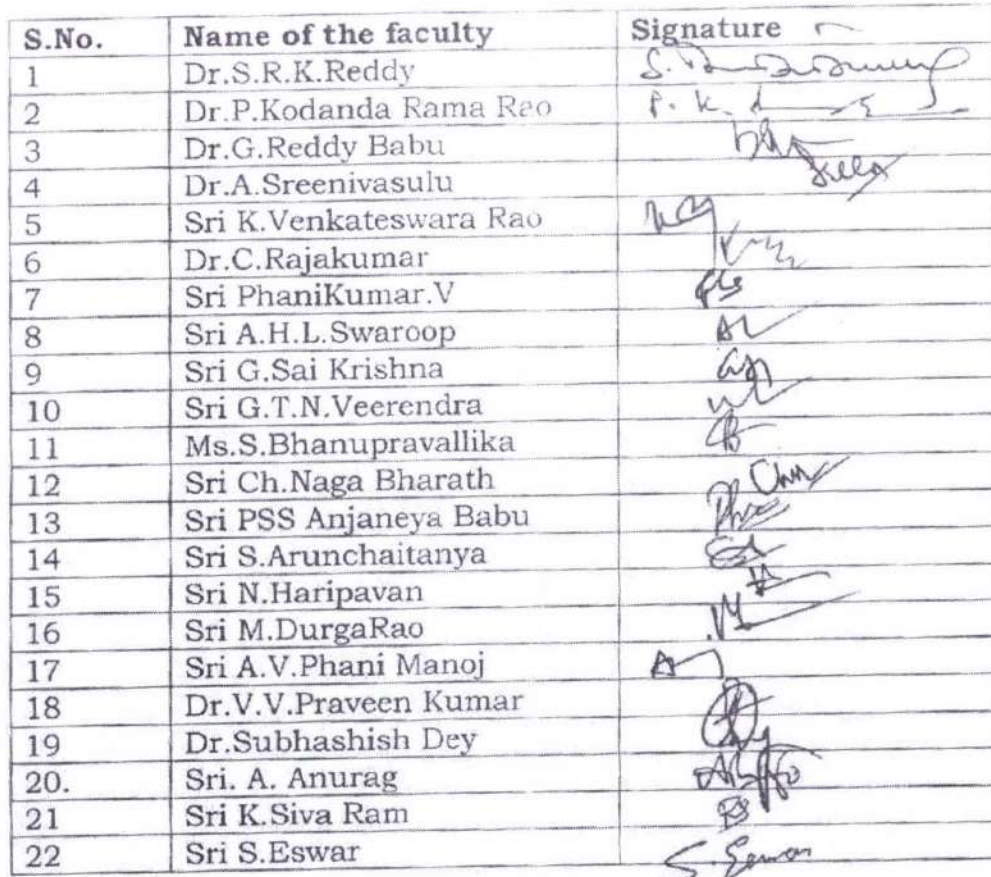 S.No. Name of the faculty Signature
1 Dr.S.R.K.Reddy
2 Dr.P.Kodanda Rama Rao P. K.
3 Dr.G.Reddy Babu
4 Dr.A.Sreenivasulu
5 Sri K.Venkateswara Rao
6 Dr.C.Rajakumar
7 Sri PhaniKumar.V
8 Sri A.H.L.Swaroop
9 Sri G.Sai Krishna
10 Sri G.T.N.Veerendra
11 Ms.S.Bhanupravallika
12 Sri Ch.Naga Bharath
13 Sri PSS Anjaneya Babu
14 Sri S.Arunchaitanya
15 Sri N.Haripavan
16 Sri M.DurgaRao
17 Sri A.V.Phani Manoj
18 Dr.V.V.Praveen Kumar
19 Dr.Subhashish Dey
20. Sri. A. Anurag
21 Sri K.Siva Ram
22 Sri S.Eswar S. Eswar